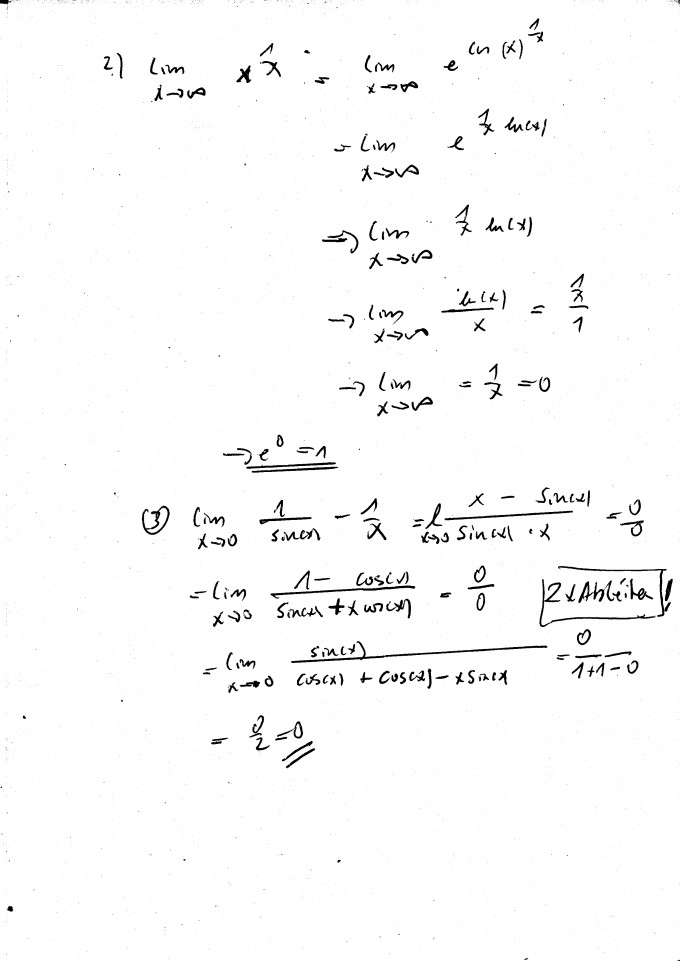 2.) lim x→∞ x^(1/x) = lim x→∞ e^(ln(x)^(1/x))
= lim x→∞ e^(1/x ln(x))
⇒ lim x→∞ 1/x ln(x)
→ lim x→∞ ln(x)/x = (1/x)/1
→ lim x→∞ = 1/x = 0
→ e^0 = 1
③ lim x→0 1/sin(x) - 1/x = l x→0 (x - sin(x))/(sin(x) · x) = 0/0
= lim x→0 (1 - cos(x))/(sin(x) + x cos(x)) = 0/0 2x Ableiten!
= lim x→0 sin(x)/(cos(x) + cos(x) - x sin(x) = 0/(1+1-0)
= 0/2 = 0